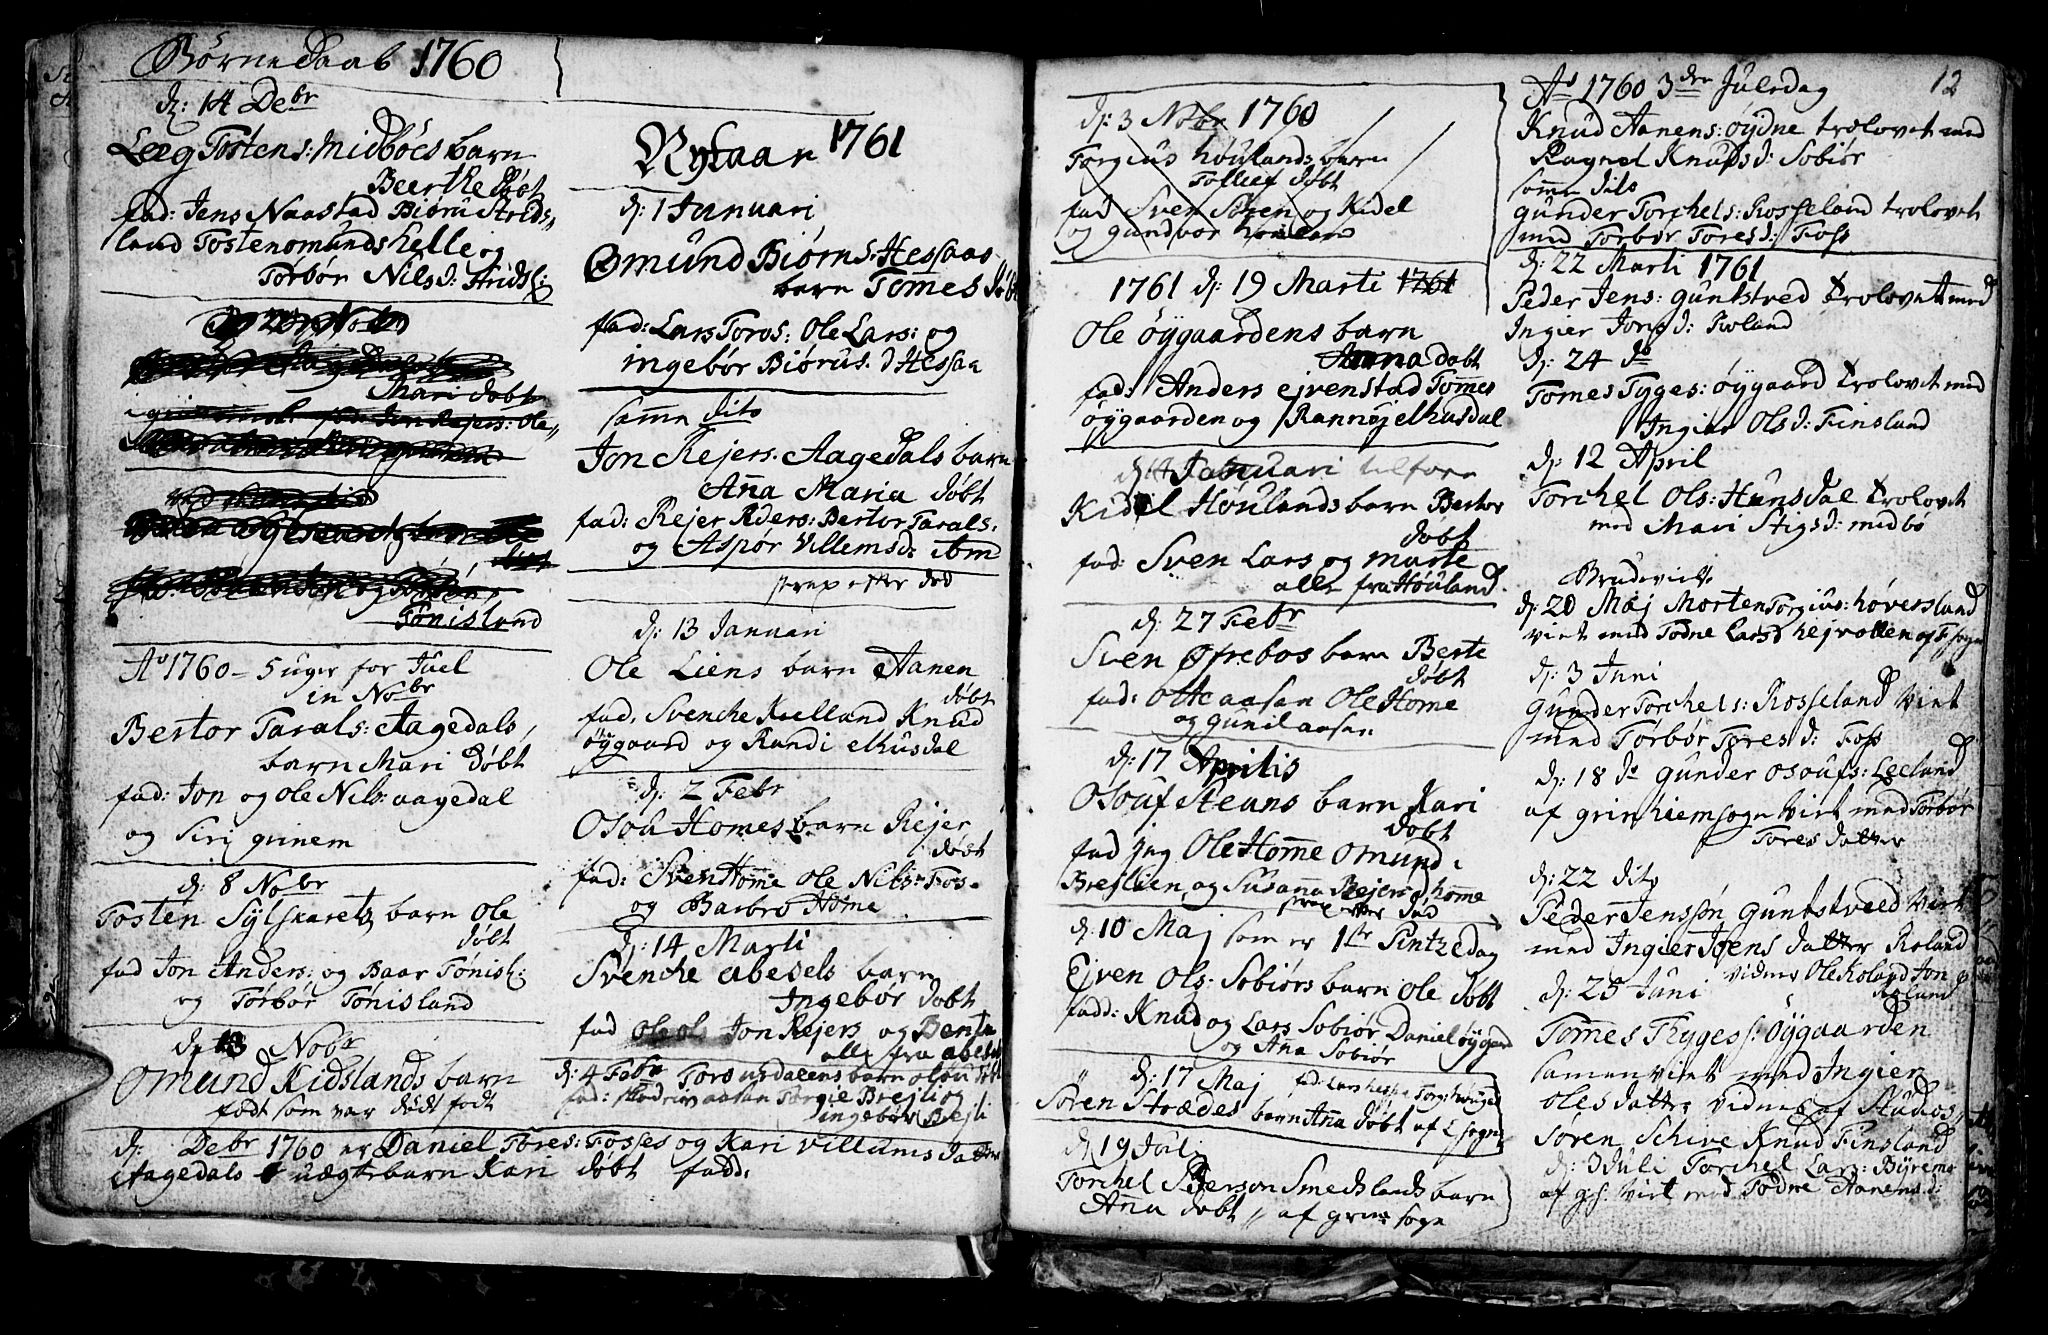 Børne Daab 1760
d: 14 Debr
Leeg Tostens: Midböes barn
Beerthe Döbt
fad: Jens Naastad Biöru Strids„
land Tosten omunds helle og
Torbör Nils d: Stridsl:
Mari döbt
Tönisland
Ao 1760 – 5 uger for Juel
in Nobr
Bertor Tarals: Aagedals,
barn Mari Döbt
fad: Jon og Ole Nils: aagedal
og Siri grinem
d: 8 Nobr
Tosten Sylskarets barn Ole
döbt
fad Jon Anders: og Baar Tönisl:
og Torbör Tönisland
d: 13 Nobr
Omund Kidslands barn
födt som var dödt födt
d: Debr 1760 er Daniel Tores: Fosses og Kari Villums Datter
Aagedals uægte barn Kari döbt fadd:
Nytaar 1761
d: 1 Januari
Omund Biörns: Hessaas
barn Tomes Döbt
fad: Lars Toros: Ole Lars: og
ingebör Biörus. d Hessaa
samme dito
Jon Rejers. Aagedals barn
Anna Maria döbt
fad: Rejer Peders: Bertor Tarals.
og Aspör Villems d: ibm
strax efter död
d: 13 Januari
Ole Liens barn Aanen
döbt
fad. Svenche Kielland Knud
öygaard og Randi elhusdal
d: 2 Febr
Osou Homes barn Rejer
döbt
fad: Sven Homme Ole Nils: Fos-
og Barbro Home
d: 14 Marti
Svenche abesels barn
Ingebör döbt
fad ole ol Jon Rejers og Bente
alle fra abesel
d: 4 Febr Tors urdalens barn olou döbt
fad: aasen Torgie Brejli og
ingebör Brejli
d: 3 Nobr 1760
Torgius höulands barn
Tollief döbt
fad Sven Sören og Kidel
og gundvor
1761 d: 19 Marti 1761
Ole öygaardens barn
Anna döbt
fad: Anders ejvenstad Tommes
öygaarden og Rannöj elhusdal
d: 4 Januari tilforn
Kidel Höulands barn Bertor
döbt
fad: Sven Lars og marte
alle fra Höuland.
d: 27 Febr
Sven Öfrebos barn Berte
döbt
fad: Otte aasen Ole Home
og gunil aasen
d: 17 Aprilis
Osouf Steans barn Kari
döbt
fad jeg Ole Homme Omund.
Brejlien og Susanna Rejers d homme
strax efter död
d: 10 Maj som er 1ste Pintzedag
Ejven Ols: Sobiörs barn Ole döbt
fadd: Knud og Lars Sobiör Daniel öygard
og Anna Sobiör
d: 17 Maj fad: Lars
Sören Strædes barn Anna döbt af L sogn
d 19 Joli
Torchel Pederson Smedslands barn
Anna döbt „ af grin: sogn
12
Ao 1760 3den Juledag
Knud Aanens: öydne trolovet med
Ragnel Knuds d: Sobiör
samme dito
gunder Torchels: Rosseland trolovet
med Torbör Tores d: Foss
d: 22 Marti 1761
Peder Jens: guntstved trolovet med
Ingier Jons d: Roland
d: 24 do
Tomes Tyges: öygaard trolovet med
Ingier Ols d: Finsland
d: 12 April
Torchel Ols: Hunsdal trolovet
med Mari Stigs d: midbö
Brudeviet
d: 20 Maj Morten Torgius: höversland
viet med Todne Lars d hejvollen af F sogn
d: 3 Juni
gunder Torchels: Rosseland Viet
med Torbör Tores d: Foss
d: 18 do gunder Osoufs: Leeland
af grinhiem sogn Viet med Torbör
Tores datter
d: 22 dito
Peder Jenssön guntstveed Viet
med Ingier Joens datter Roland
vidner Ole Roland Jon
Roland
d: 25 Juni
Tommes Thyges s: öygaarden
samenviet med Ingier
oles datter vidner af Studios,
Sören Schive Knud Finsland
d: 3 Juli Torchel Lars: Byremo
af gh: Viet med Todne Aanens d: